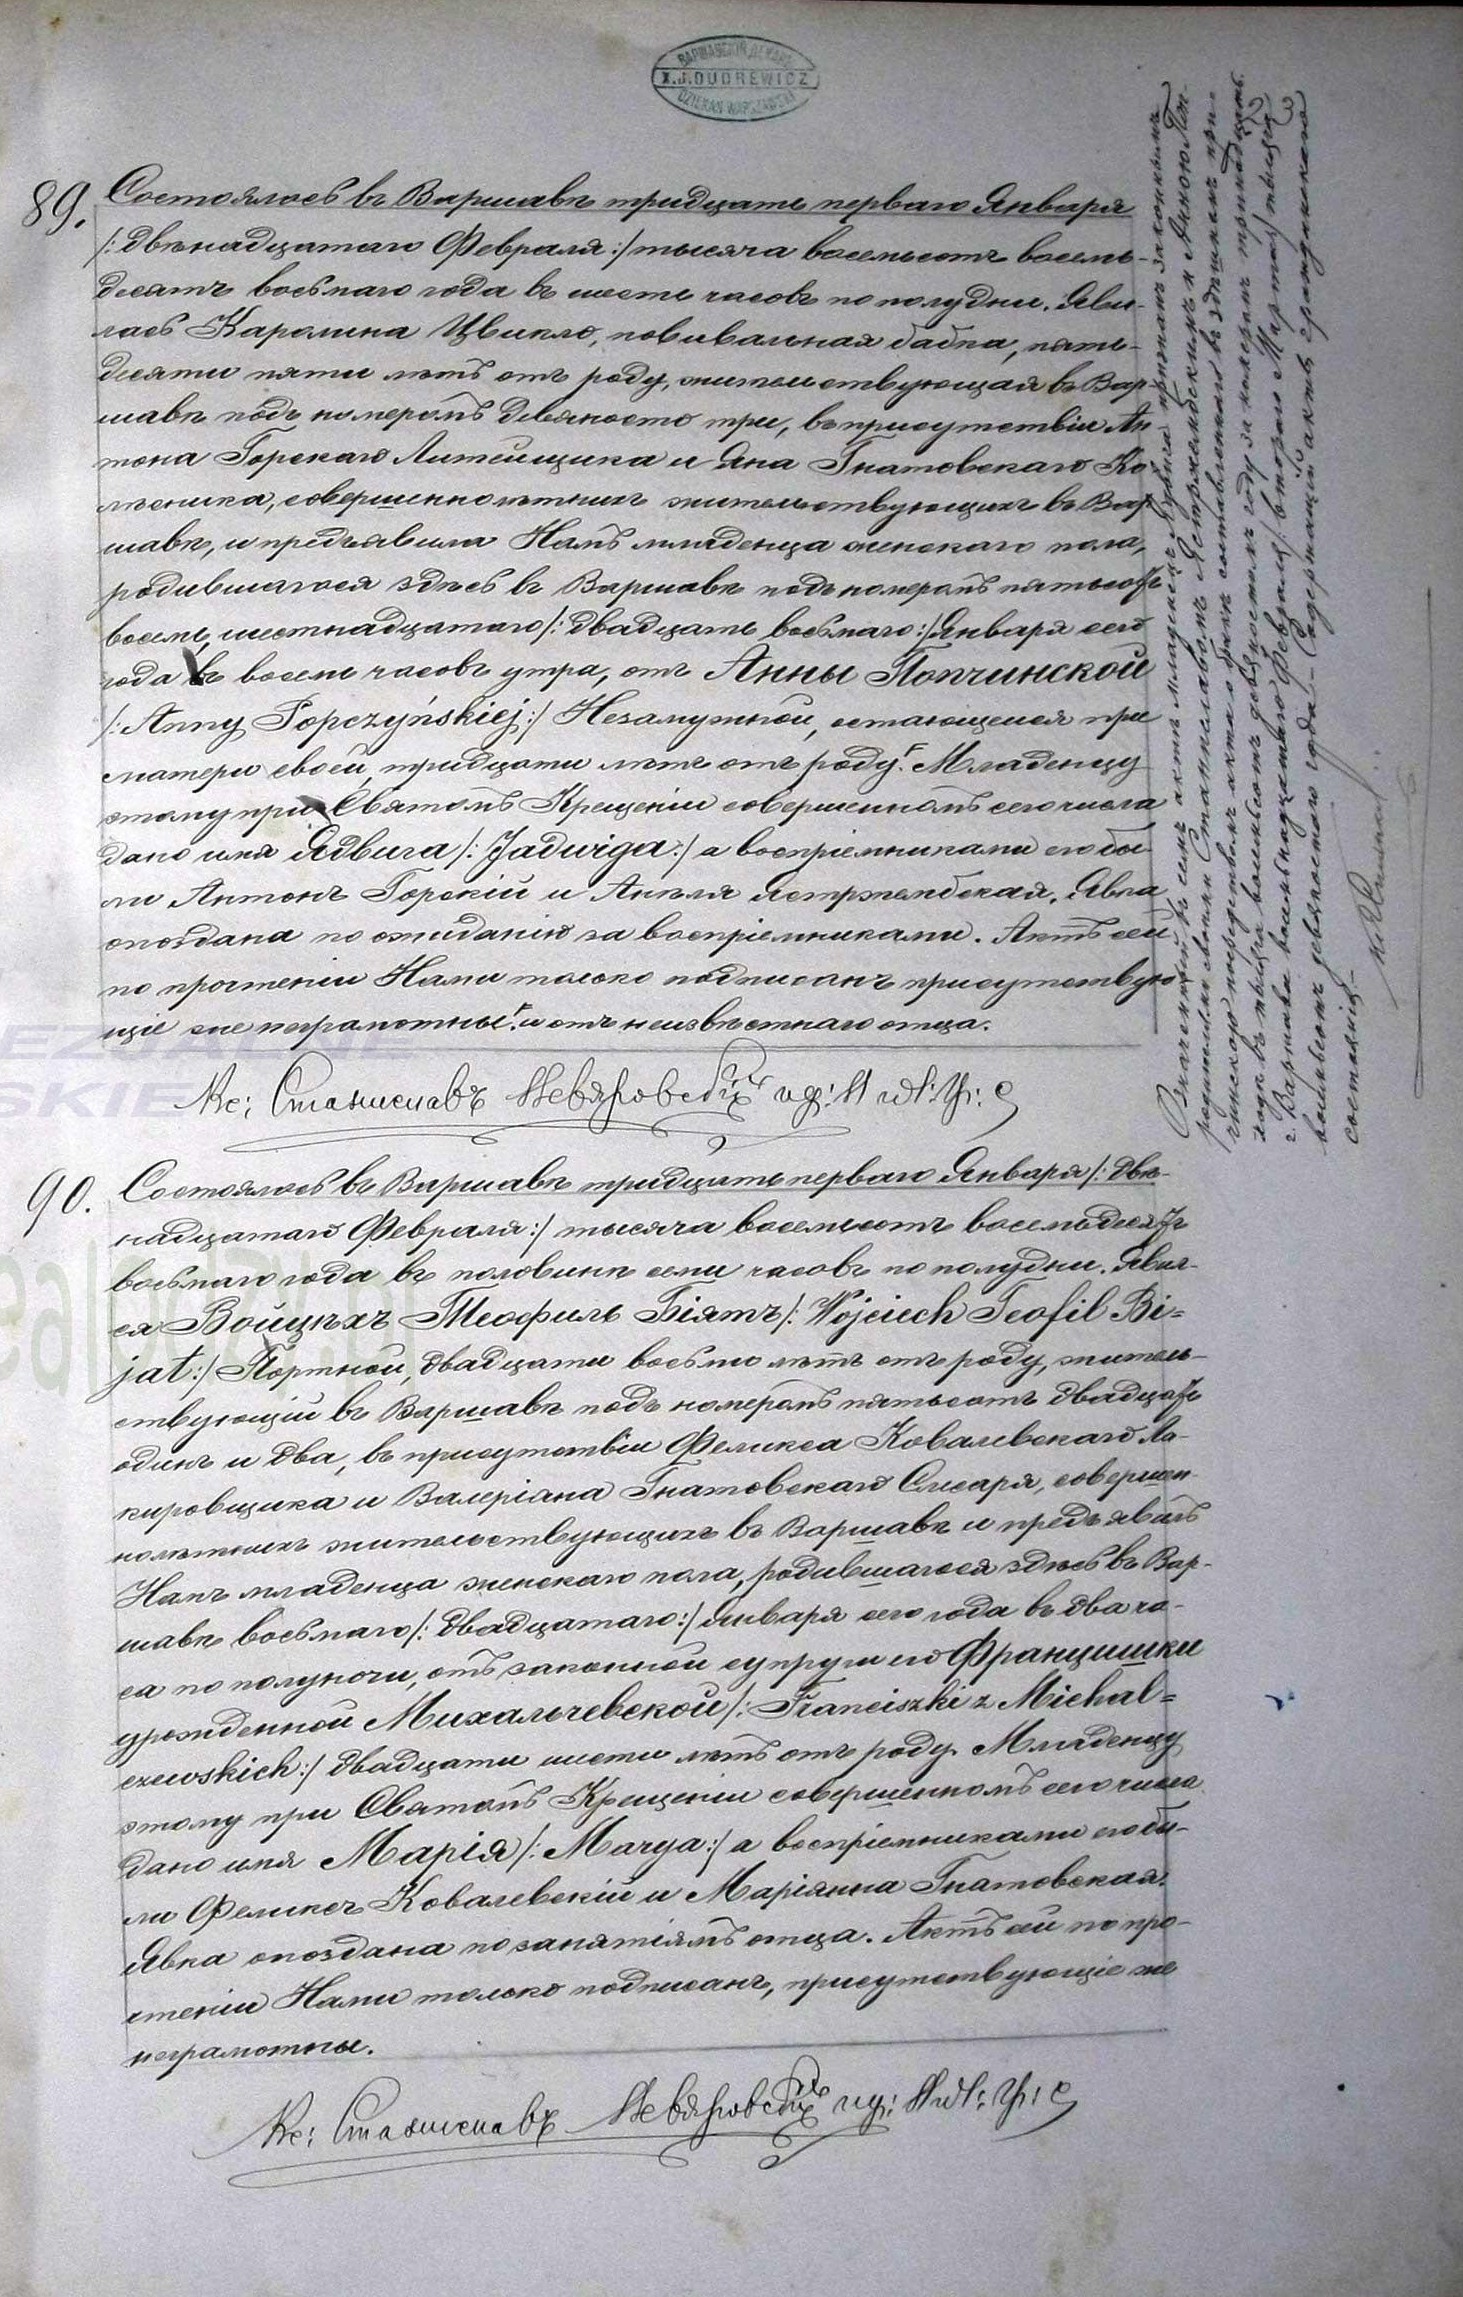 ВАРШАВСКІЙ ДЕКАНЪ
X.J.DUDREWICZ
DZIEKAN WARSZAWSKI
89. Состоялось въ Варшавѣ тридцать перваго Января
/: двѣнадцатаго Февраля :/ тысяча восемьсотъ восемь-
десятъ восьмаго года въ шесть часовъ по полудни. Яви-
лась Каролина Цвикло, повивальная бабка, пять-
десяти пяти лѣтъ отъ роду, жительствующая въ Вар-
шавѣ подъ номеромъ девяносто три, въ присутствіи Ан-
тона Горскаго Литейщика и Яна Гнатовскаго Ко-
лесника, совершеннолѣтнихъ жительствующихъ въ Вар-
шавѣ, и предъявила Намъ младенца женскаго пола,
родившагося здѣсь въ Варшавѣ подъ номеромъ пятьсотъ
восемь, шестнадцатаго /: двадцать восьмаго :/ Января сего
года въ восемь часовъ утра, отъ Анны Попчинской
/: Anny Popczyńskiej :/ Незамужной, остающейся при
матери своей, тридцати лѣтъ отъ роду. Младенцу
этому при Святомъ Крещеніи совершенномъ сего числа
дано имя Ядвига /: Jadwiga :/ а воспріемниками его бы-
ли Антонъ Горскій и Анѣля Ястржембская. Явка
опоздана по ожиданію за воспріемниками. Актъ сей
по прочтеніи Нами только подписанъ присутствую
щіе же неграмотны. и отъ неизвѣстнаго отца.
Кс: Станиславъ Невяровскій
Означенный въ семъ актѣ младенецъ Ядвига признанъ законнымъ
родителями своими Станиславомъ Ястржембскимъ и Анною Поп-
чинскою посредствомъ акта о бракѣ составленнаго въ здѣшнемъ при-
ходѣ въ тысяча восемьсотъ девяностомъ году за номеромъ тринадцать.
г. Варшава восемнадцатаго Февраля /: втораго Марта :/ тысяча
восемьсотъ девяностаго года. Содержащій акты гражданскаго
состоянія
90. Состоялось въ Варшавѣ тридцать перваго Января /: двѣ-
надцатаго Февраля :/ тысяча восемьсотъ восемьдесятъ
восьмаго года въ половинѣ семи часовъ по полудни. Явил-
ся Войцѣхъ Теофиль Біятъ /: Wojciech Teofil Bi=
jat :/ Портной, двадцати восьми лѣтъ отъ роду, житель-
ствующій въ Варшавѣ подъ номеромъ пятьсотъ двадцать
одинъ и два, въ присутствіи Феликса Ковалевскаго Ла-
кировщика и Валеріана Гнатовскаго Слесаря, совершен-
нолѣтнихъ жительствующихъ въ Варшавѣ и предъявилъ
Намъ младенца женскаго пола, родившагося здѣсь въ Вар-
шавѣ восьмаго /: двадцатаго :/ Января сего года въ два ча-
са по полуночи, отъ законной супруги его Францишки
урожденной Михальчевской /: Franciszki z Michal=
czewskich :/ двадцати шести лѣтъ отъ роду. Младенцу
этому при Святомъ Крещеніи совершенномъ сего числа
дано имя Марія /: Marya :/ а воспріемниками его бы-
ли Феликсъ Ковалевскій и Маріянна Гнатовская.
Явка опоздана по занятіямъ отца. Актъ сей по про-
чтеніи Нами только подписанъ, присутствующіе же
неграмотны.
Кс: Станиславъ Невяровскій